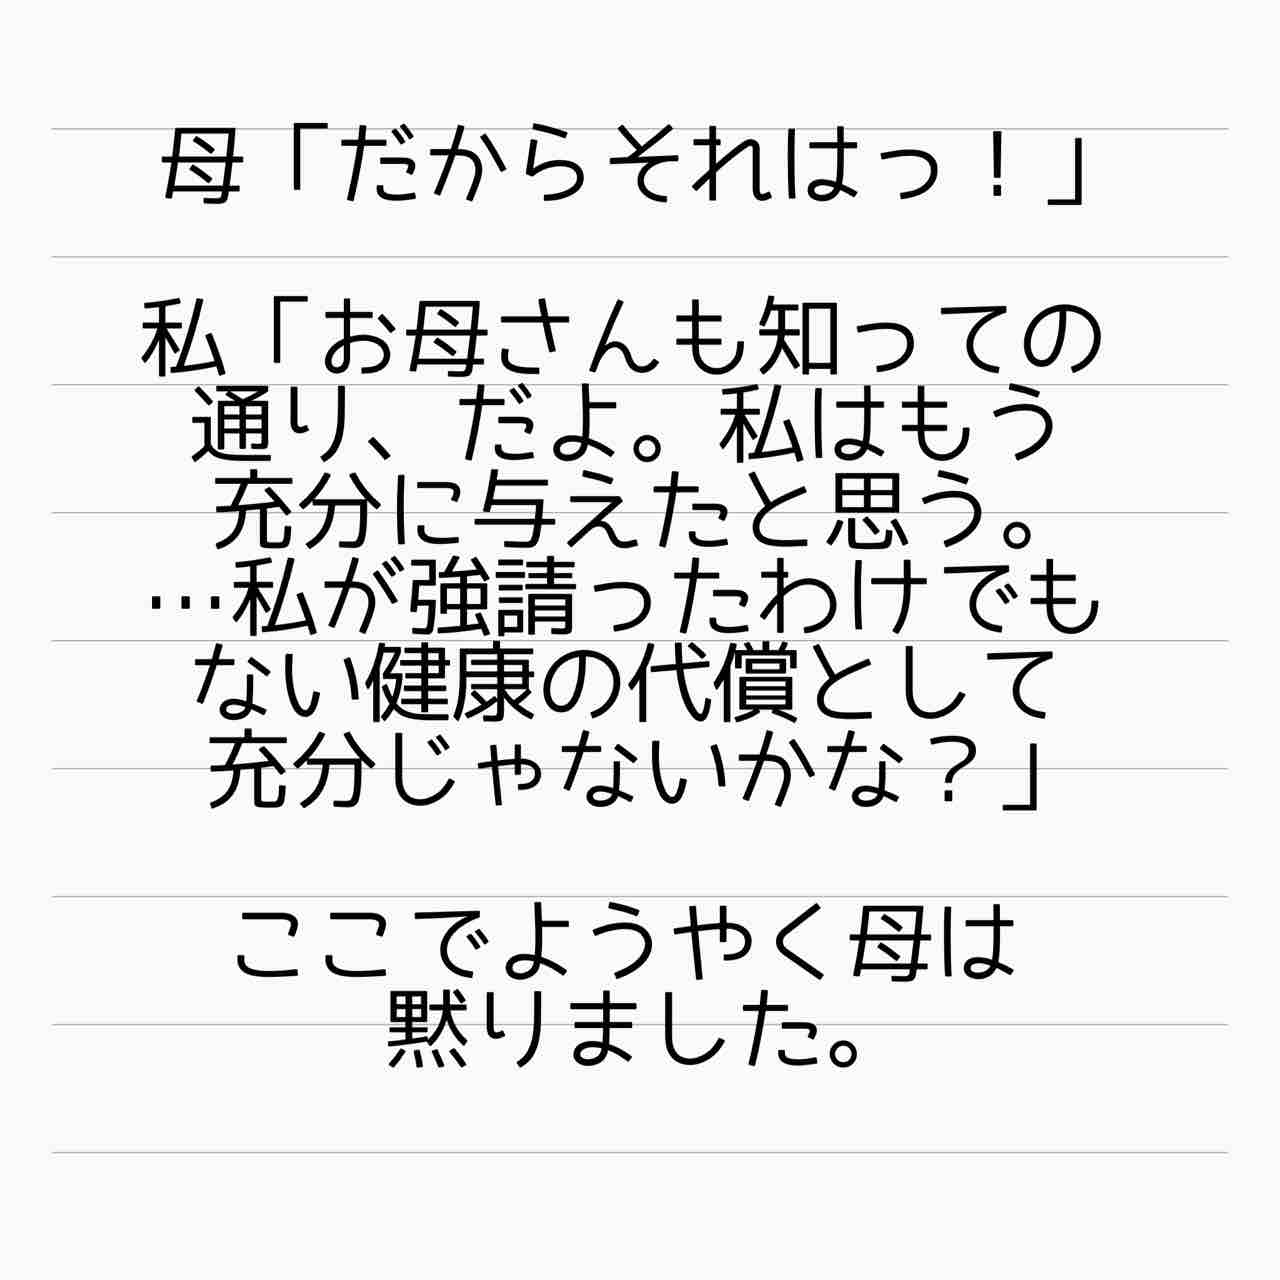 母「だからそれはっ！」
私「お母さんも知っての
通り、だよ。私はもう
充分に与えたと思う。
…私が強請ったわけでも
ない健康の代償として
充分じゃないかな？」
ここでようやく母は
黙りました。